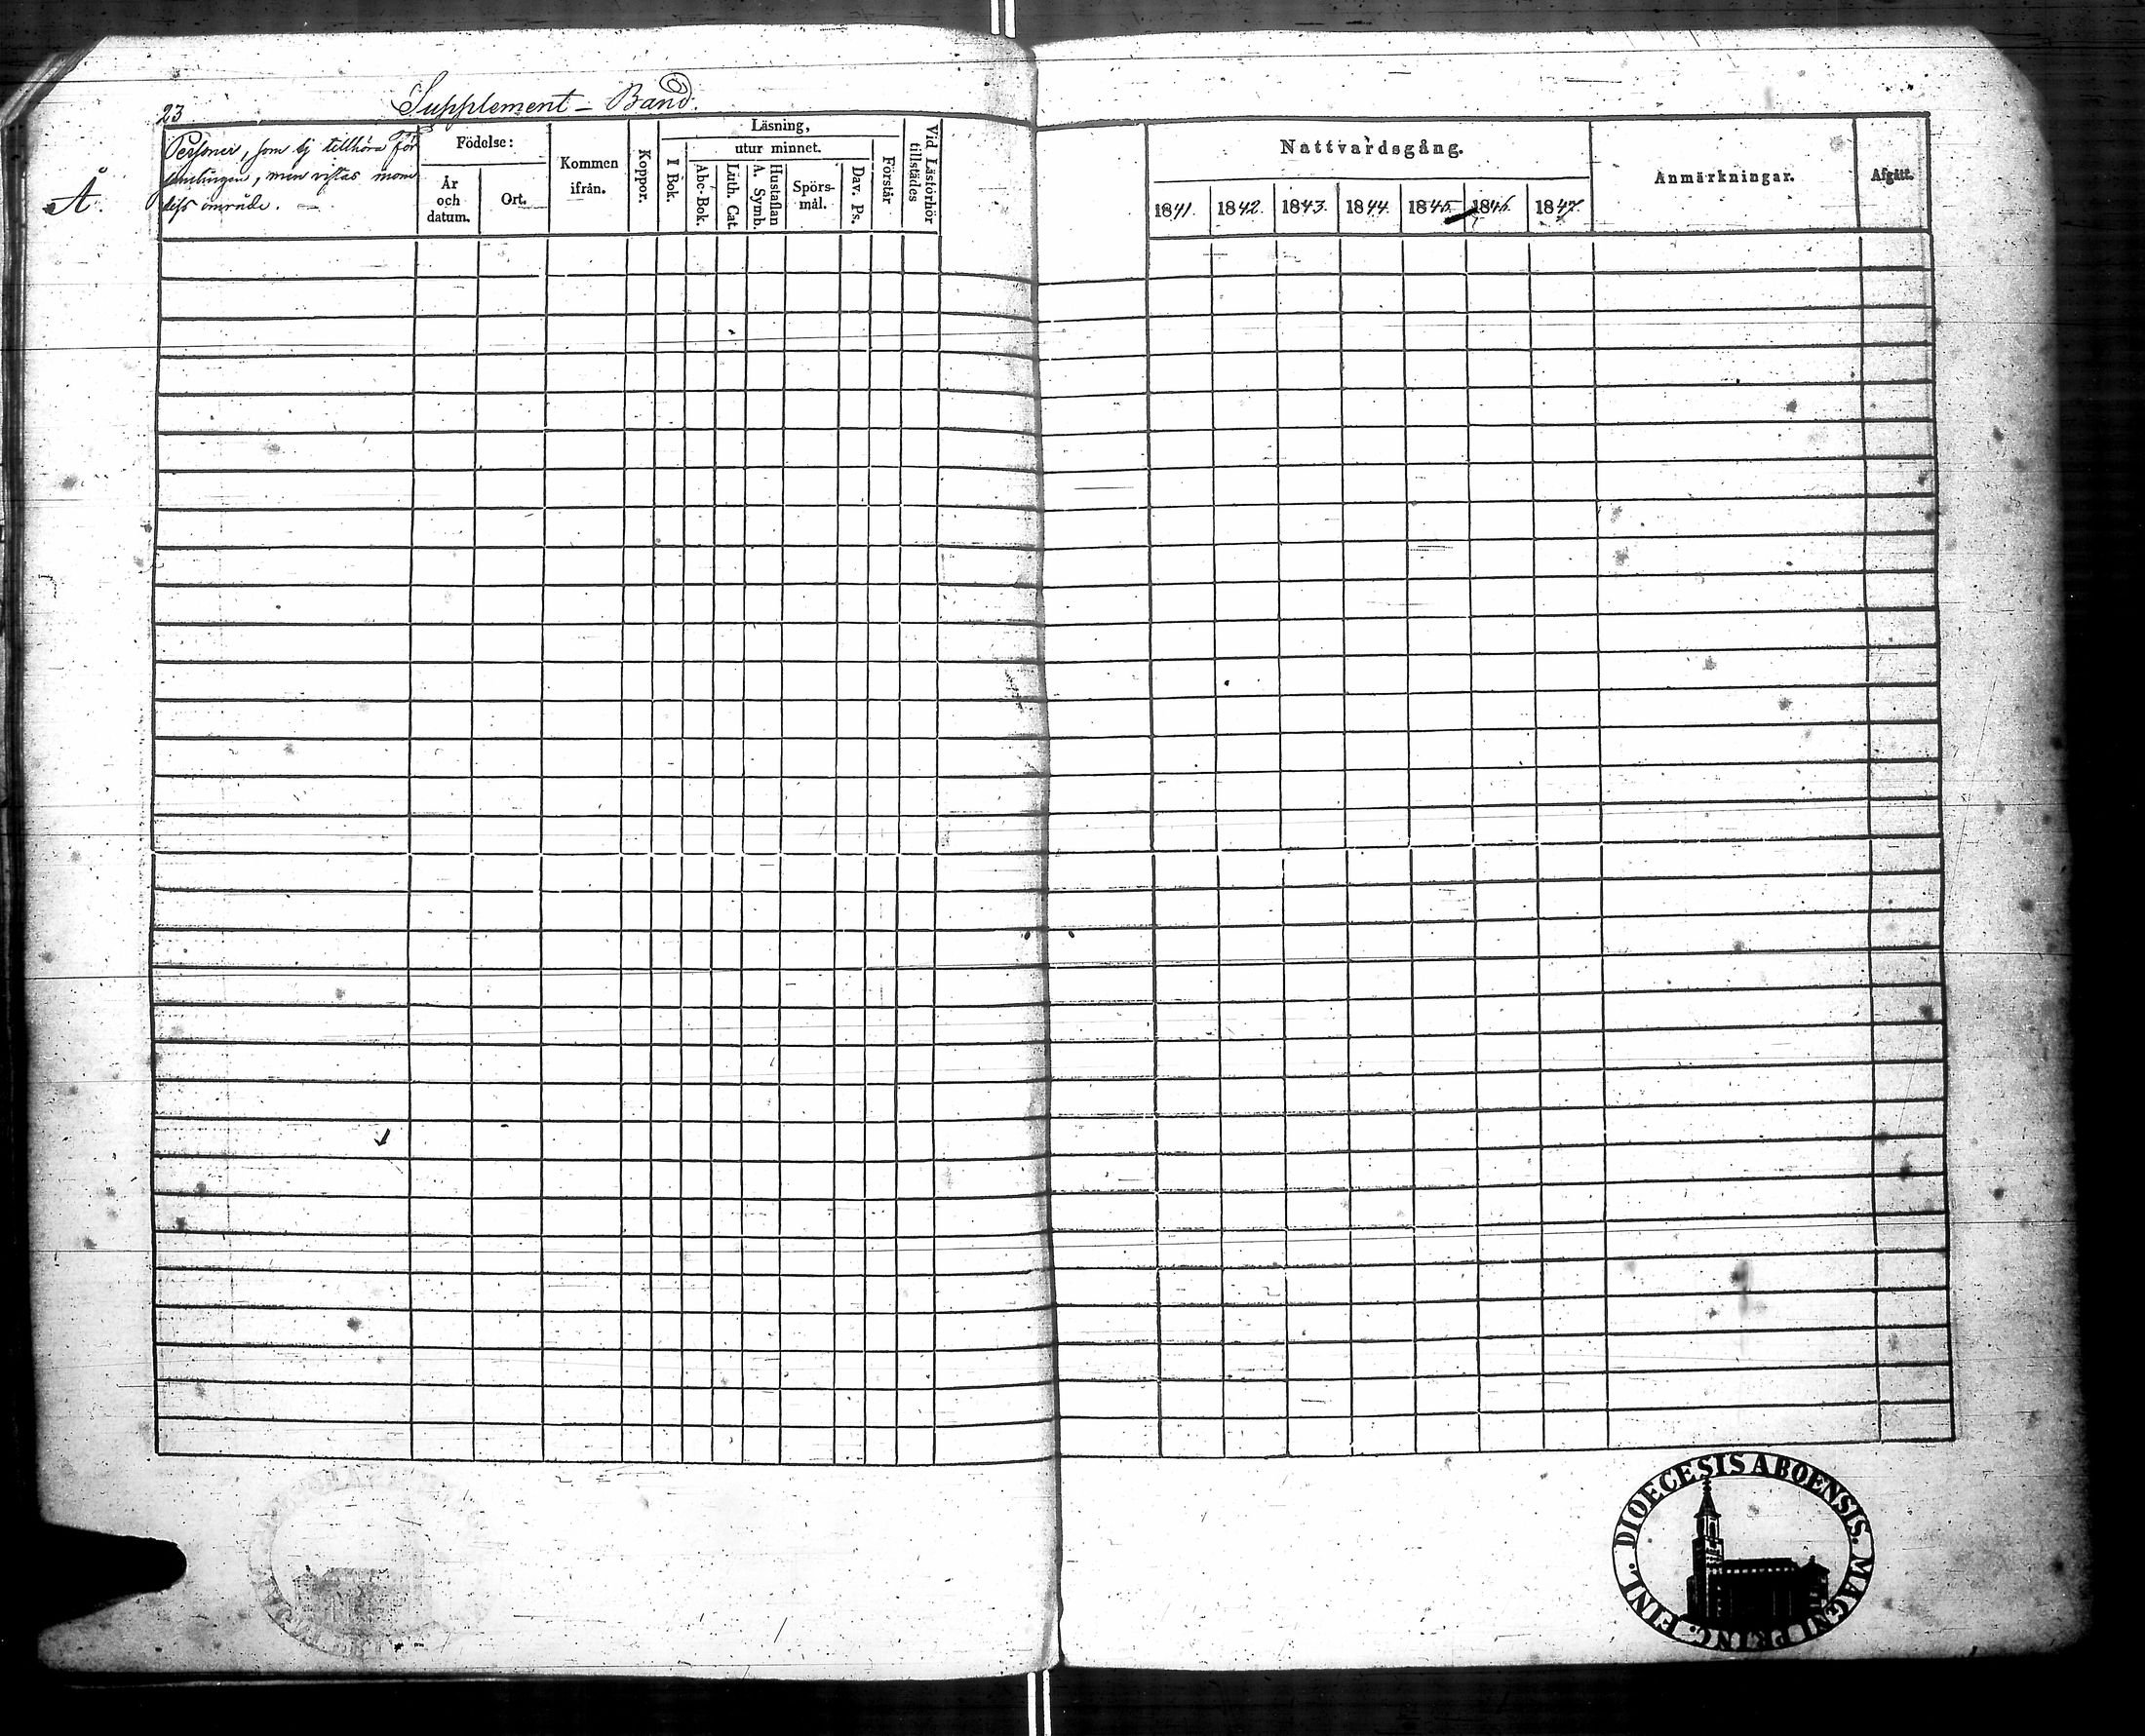 23 Supplement-Band.
Å.
Personer, som ej tillhöra För
samlingen, men vistas inom
dess område. —
Födelse:
År
och
datum.
Ort.
Kommen
ifrån.
Koppor.
Läsning,
I Bok.
utur minnet.
Abc-Bok.
Luth. Cat.
Hustaflan
A. Symb.
Spörs-
mål.
Dav. Ps.
Förstår
Vid Läsförhör
tillstädes
Nattvardsgång.
1841. 1842. 1843. 1844. 1845. 1846. 1847.
Anmärkningar.
Afgått.
DIOECESIS ABOENSIS. MAGNI PRINC. FINL.